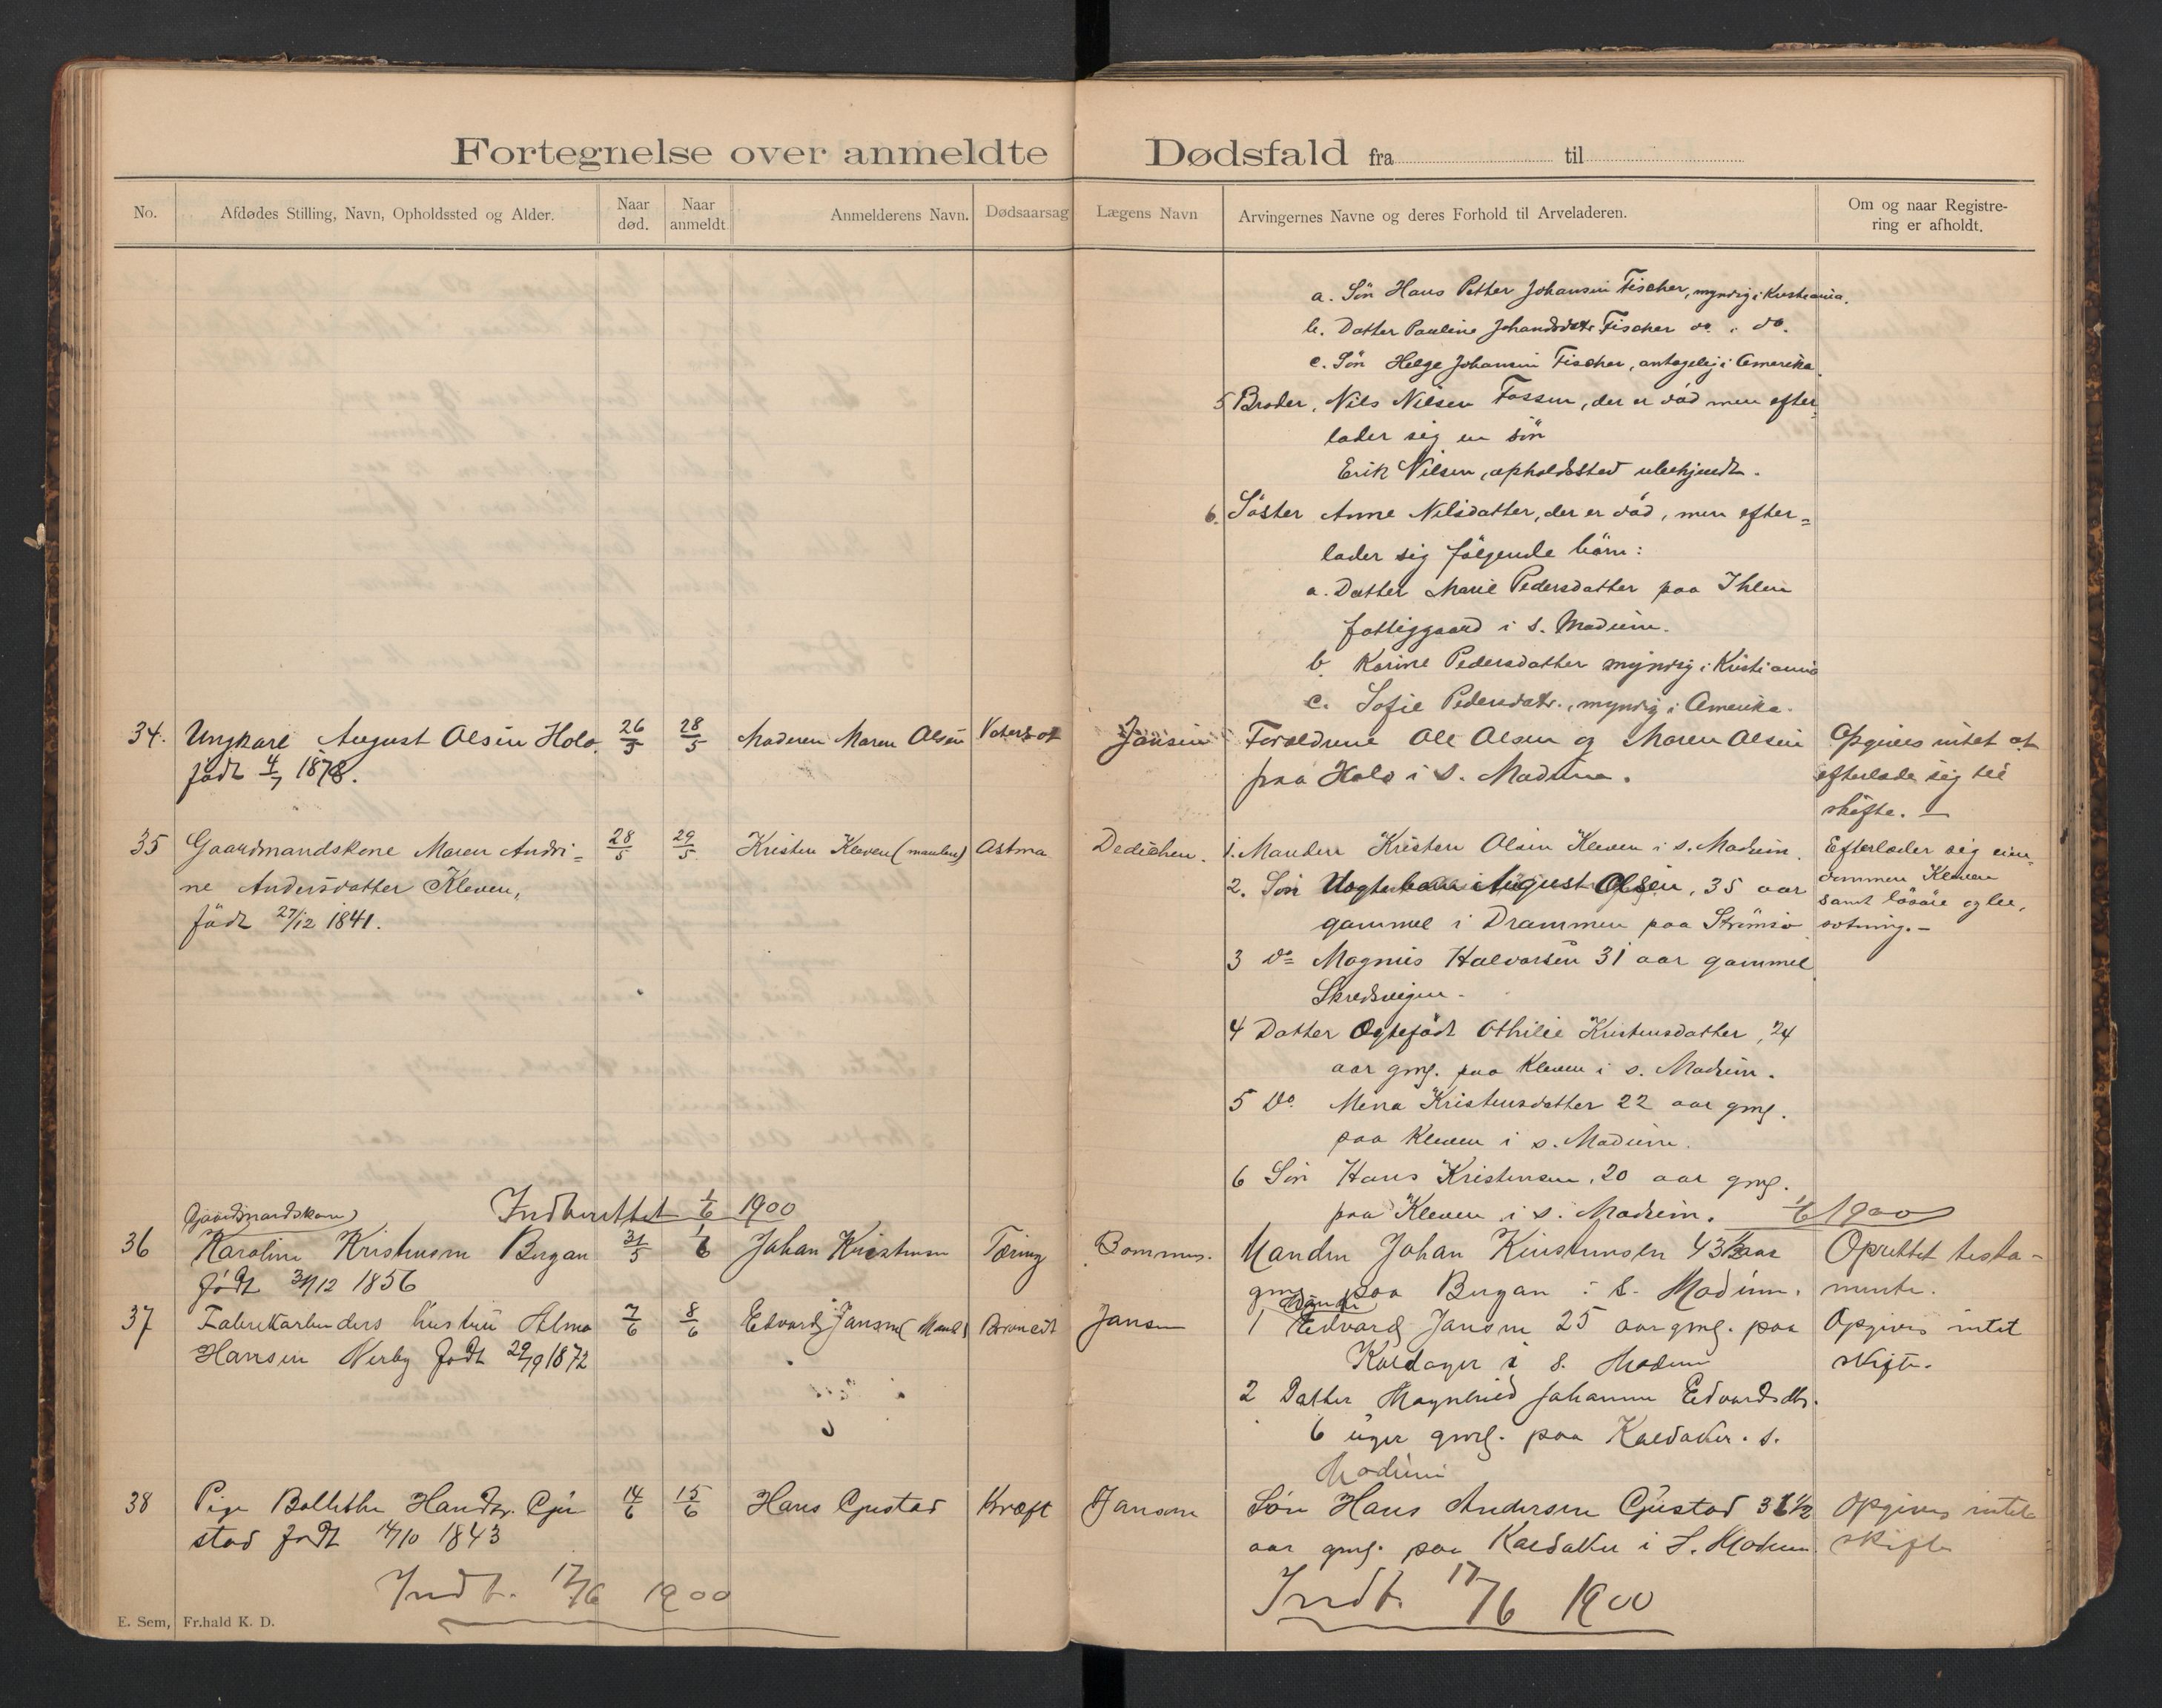 Fortegnelse over anmeldte Dødsfald fra til
No.
Afdødes Stilling, Navn, Opholdssted og Alder.
Naar død.
Naar anmeldt
Anmelderens Navn.
Dødsaarsag
Lægens Navn
Arvingernes Navne og deres Forhold til Arveladeren.
Om og naar Registre-
ring er afholdt.
a. Sön Hans Petter Johansen Fischer, myndig i Kristiania.
b. Datter Pauline Johansdatr Fischer do. i do.
c. Sön Helge Johansen Fischer, antagelig i Amerika.
5 Broder, Nils Nilsen Fossen, der er död men efter-
lader sig en sön
Erik Nilsen, opholdssted ubekjendt.
6. Söster Anne Nilsdatter, der er död, men efter=
lader sig fölgende börn:
a. Datter Marie Pedersdatter paa Ihlen
fattiggaard i s. Modum.
b. Karine Pedersdatter myndig i Kristiania
c. Sofie Pedersdatr., myndig i Amerika.
34. Ungkarl August Olsen Holo. 26/5 28/5 Moderen Maren Olsen Vatersot Jansen Foreldrene Ole Olsen og Maren Olsen Opgives intet at
födt 4/7 1878. paa Holo i S. Modum. efterlade sig til
skifte. —
35 Gaardmandskone Maren Andri= 28/5 29/5 Kristen Kleven (manden) Astma Dedichen. 1. Manden Kristen Olsen Kleven i s. Modum. Efterlader sig eien-
ne Andersdatter Kleven, 2. Sön August Olsen, 35 aar dommen Kleven
födt 27/12 1841. gammel i Drammen paa Strömsö samt lösöre og be-
sætning.-
3 do Magnus Halvorsen 31 aar gammel
4 Datter Ægtefödt Othilie Kristensdatter, 24
aar gmg. paa Kleven i s. Modum.
5 do. Mena Kristensdatter 22 aar gmg.
paa Kleven i s. Modum.
6 Sön Hans Kristensen, 20 aar gmg.
paa Kleven i s. Modum. 1/6 1900
Indberettet 1/6 1900
Gaardmandskone
36 Karoline Kristensen Bergan 31/5 1/6 Johan Kristensen Tæring Manden Johan Kristensen 43 aar Oprettet testa-
Födt 31/12 1856 gmg paa Bergan i S. Modum. mente.
37 Fabrikarbeiders hustru Alma 7/6 8/6 Edvard Jansen (Mand) Jansen 1 Mand Edvard Jansen 25 aar gmg. paa Opgives intet
Hansen Nerby födt 29/9 1872 Kaldager i S. Modum skifte.
2 Datter Magnhild Johanne Edvardsdtr.
6 uger gmg. paa Kaldaker. s.
Modum
38 Pige Hansdr. Gju 14/6 15/6 Hans Gjustad Kræft Jansen Sön Hans Andersen Gjustad 31 1/2 Opgives intet
stad født 14/10 1843 aar gmg. paa Kaldaker i S. Modum skifte
Indb. 17/6 1900
Indb. 17/6 1900
E. Sem, Fr.hald K. D.